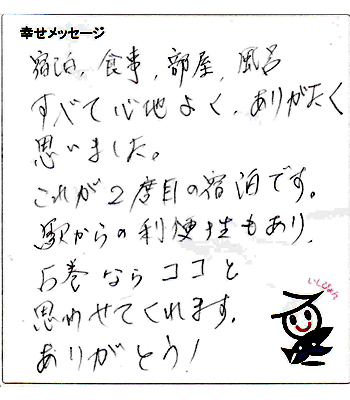 幸せメッセージ
宿泊、食事、部屋、風呂
すべて心地よく、ありがたく
思いました。
これが2度目の宿泊です。
駅からの利便性もあり、
石巻ならココと
思わせてくれます。
ありがとう!
いしぴょん